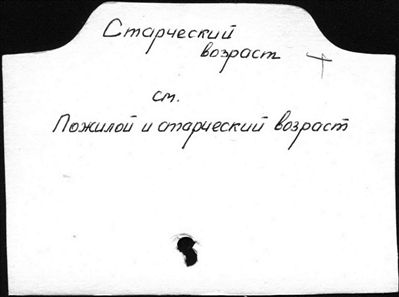 Старческий
возраст +
см.
Пожилой и старческий возраст